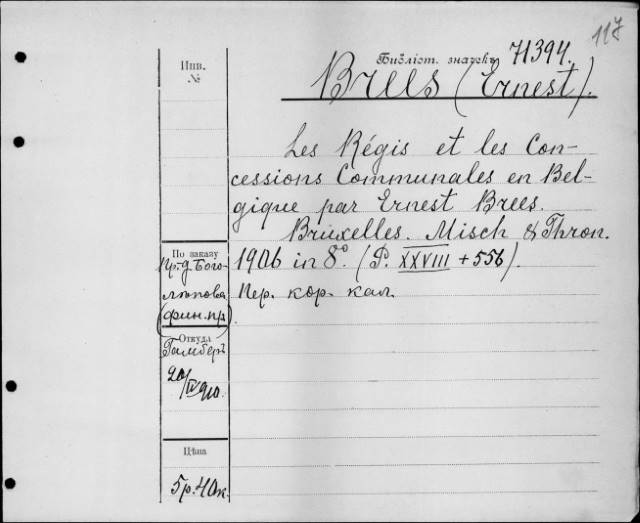 117
Библіот. значекъ 71394.
Инв.
№
Brees (Ernest).
Les Régis et les Con-
cessions Communales en Bel-
gique par Ernest Brees.
Bruxelles. Misch & Thron.
1906 in 8°. (P. XXVIII + 556).
Пер. кор. кал.
По заказу
Пр. д. Бого-
лѣпова
(фин. пр.)
Откуда
Гамберъ
20/IV 910.
Цѣна
5 р. 40 к.